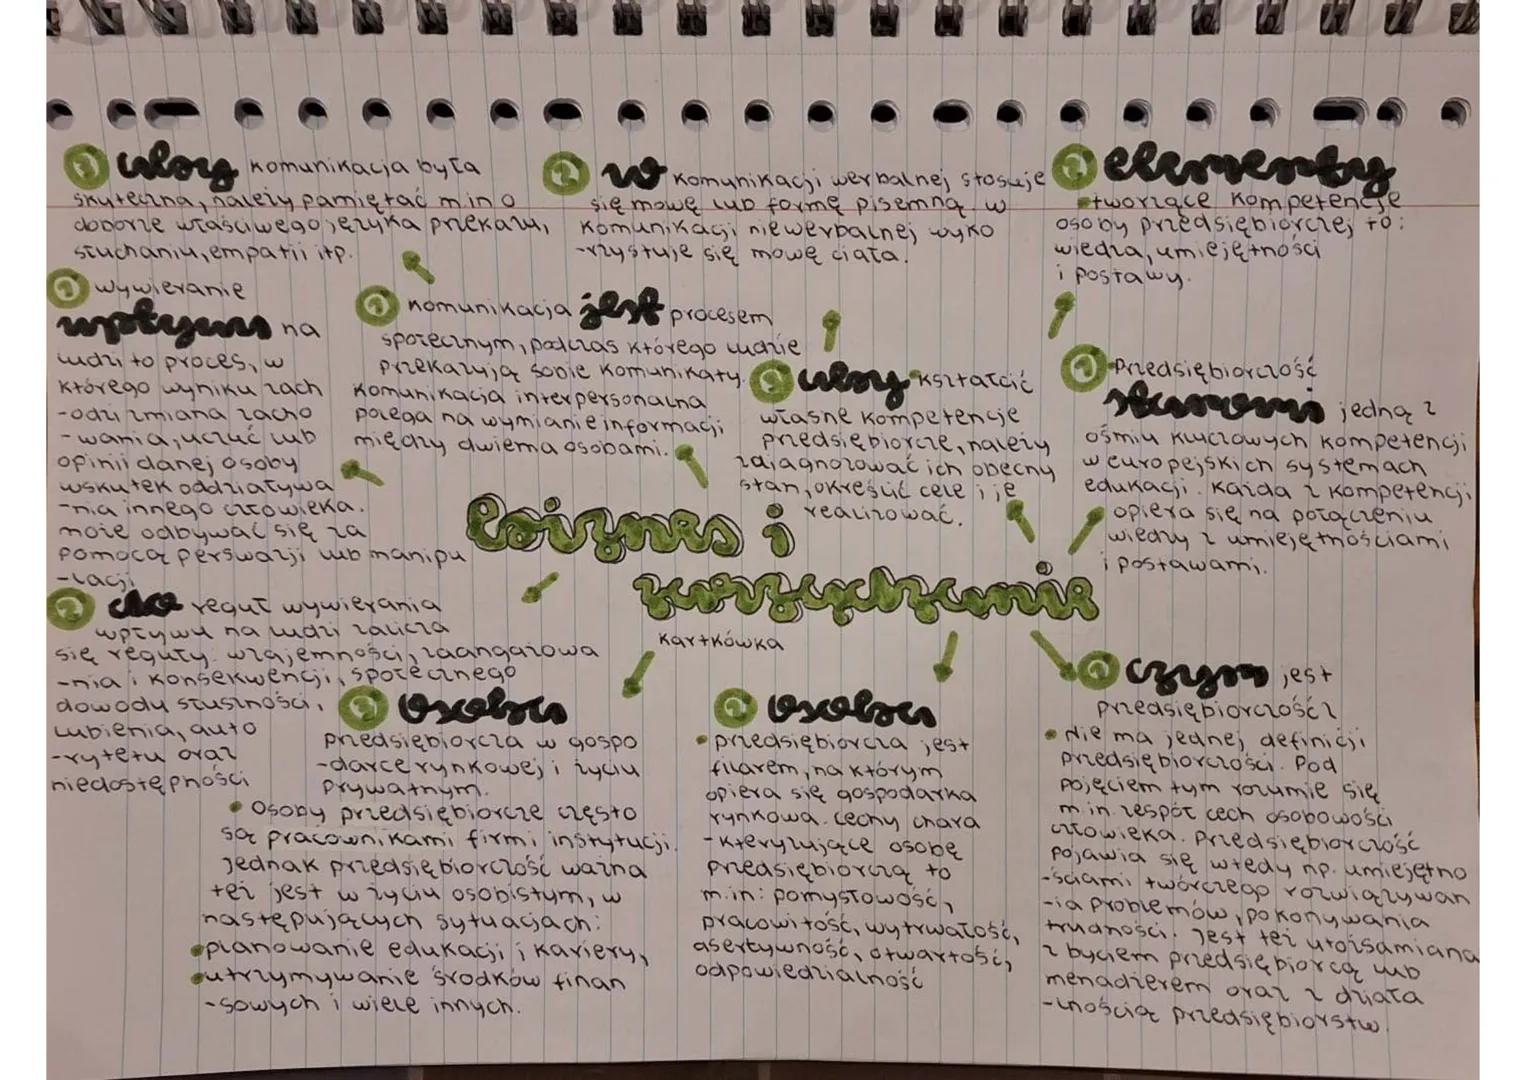 ① aby komunikacja była
skuteczna, należy pamiętać m.in o
doborze właściwego języka przekazu,
słuchaniu, empatii itp.
② w komunikacji werbalnej stosuje
się mowę lub formę pisemną. w
komunikacji niewerbalnej wyko
-rzystuje się mowę ciała.
② elementy
tworzące kompetencje
osoby przedsiębiorczej to:
wiedza, umiejętności
i postawy.
① wywieranie
wpływu na
ludzi to proces, w
którego wyniku zach
-odzi zmiana zacho
-wania, uczuć lub
opinii danej osoby
wskutek oddziaływa
-nia innego człowieka.
może odbywać się za
pomocą perswazji lub manipu
-lacji
① komunikacja jest procesem
społecznym, podczas którego ludzie
przekazują sobie komunikaty.
komunikacja interpersonalna
polega na wymianie informacji
między dwiema osobami.
② aby kształcić
własne kompetencje
przedsiębiorcze, należy
zdiagnozować ich obecny
stan, określić cele i je
realizować.
① Przedsiębiorczość
stanowi jedną z
ośmiu kluczowych kompetencji
w europejskich systemach
edukacji. każda z kompetencji
opiera się na połączeniu
wiedzy z umiejętnościami
i postawami.
biznes i
zarządzanie
kartkówka
② do reguł wywierania
wpływu na ludzi zalicza
się reguły: wzajemności, zaangażowa
-nia i konsekwencji, społecznego
dowodu słuszności,
lubienia, auto
-rytetu oraz
niedostępności
③ osoba
przedsiębiorcza w gospo
-darce rynkowej i życiu
prywatnym.
• Osoby przedsiębiorcze często
są pracownikami firm i instytucji.
jednak przedsiębiorczość ważna
też jest w życiu osobistym, w
następujących sytuacjach:
• planowanie edukacji i kariery,
• utrzymywanie środków finan
-sowych i wiele innych.
② osoba
• przedsiębiorcza jest
filarem, na którym
opiera się gospodarka
rynkowa. cechy chara
-kteryzujące osobę
przedsiębiorczą to
m.in: pomysłowość,
pracowitość, wytrwałość,
asertywność, otwartość,
odpowiedzialność
① czym jest
przedsiębiorczość?
• Nie ma jednej definicji
przedsiębiorczości. Pod
pojęciem tym rozumie się
m.in. zespół cech osobowości
człowieka. Przedsiębiorczość
pojawia się wtedy np. umiejętno
-ściami twórczego rozwiązywan
-ia problemów, pokonywania
trudności. jest też utożsamiana
z byciem przedsiębiorcą lub
menadżerem oraz z działa
-lnością przedsiębiorstw.